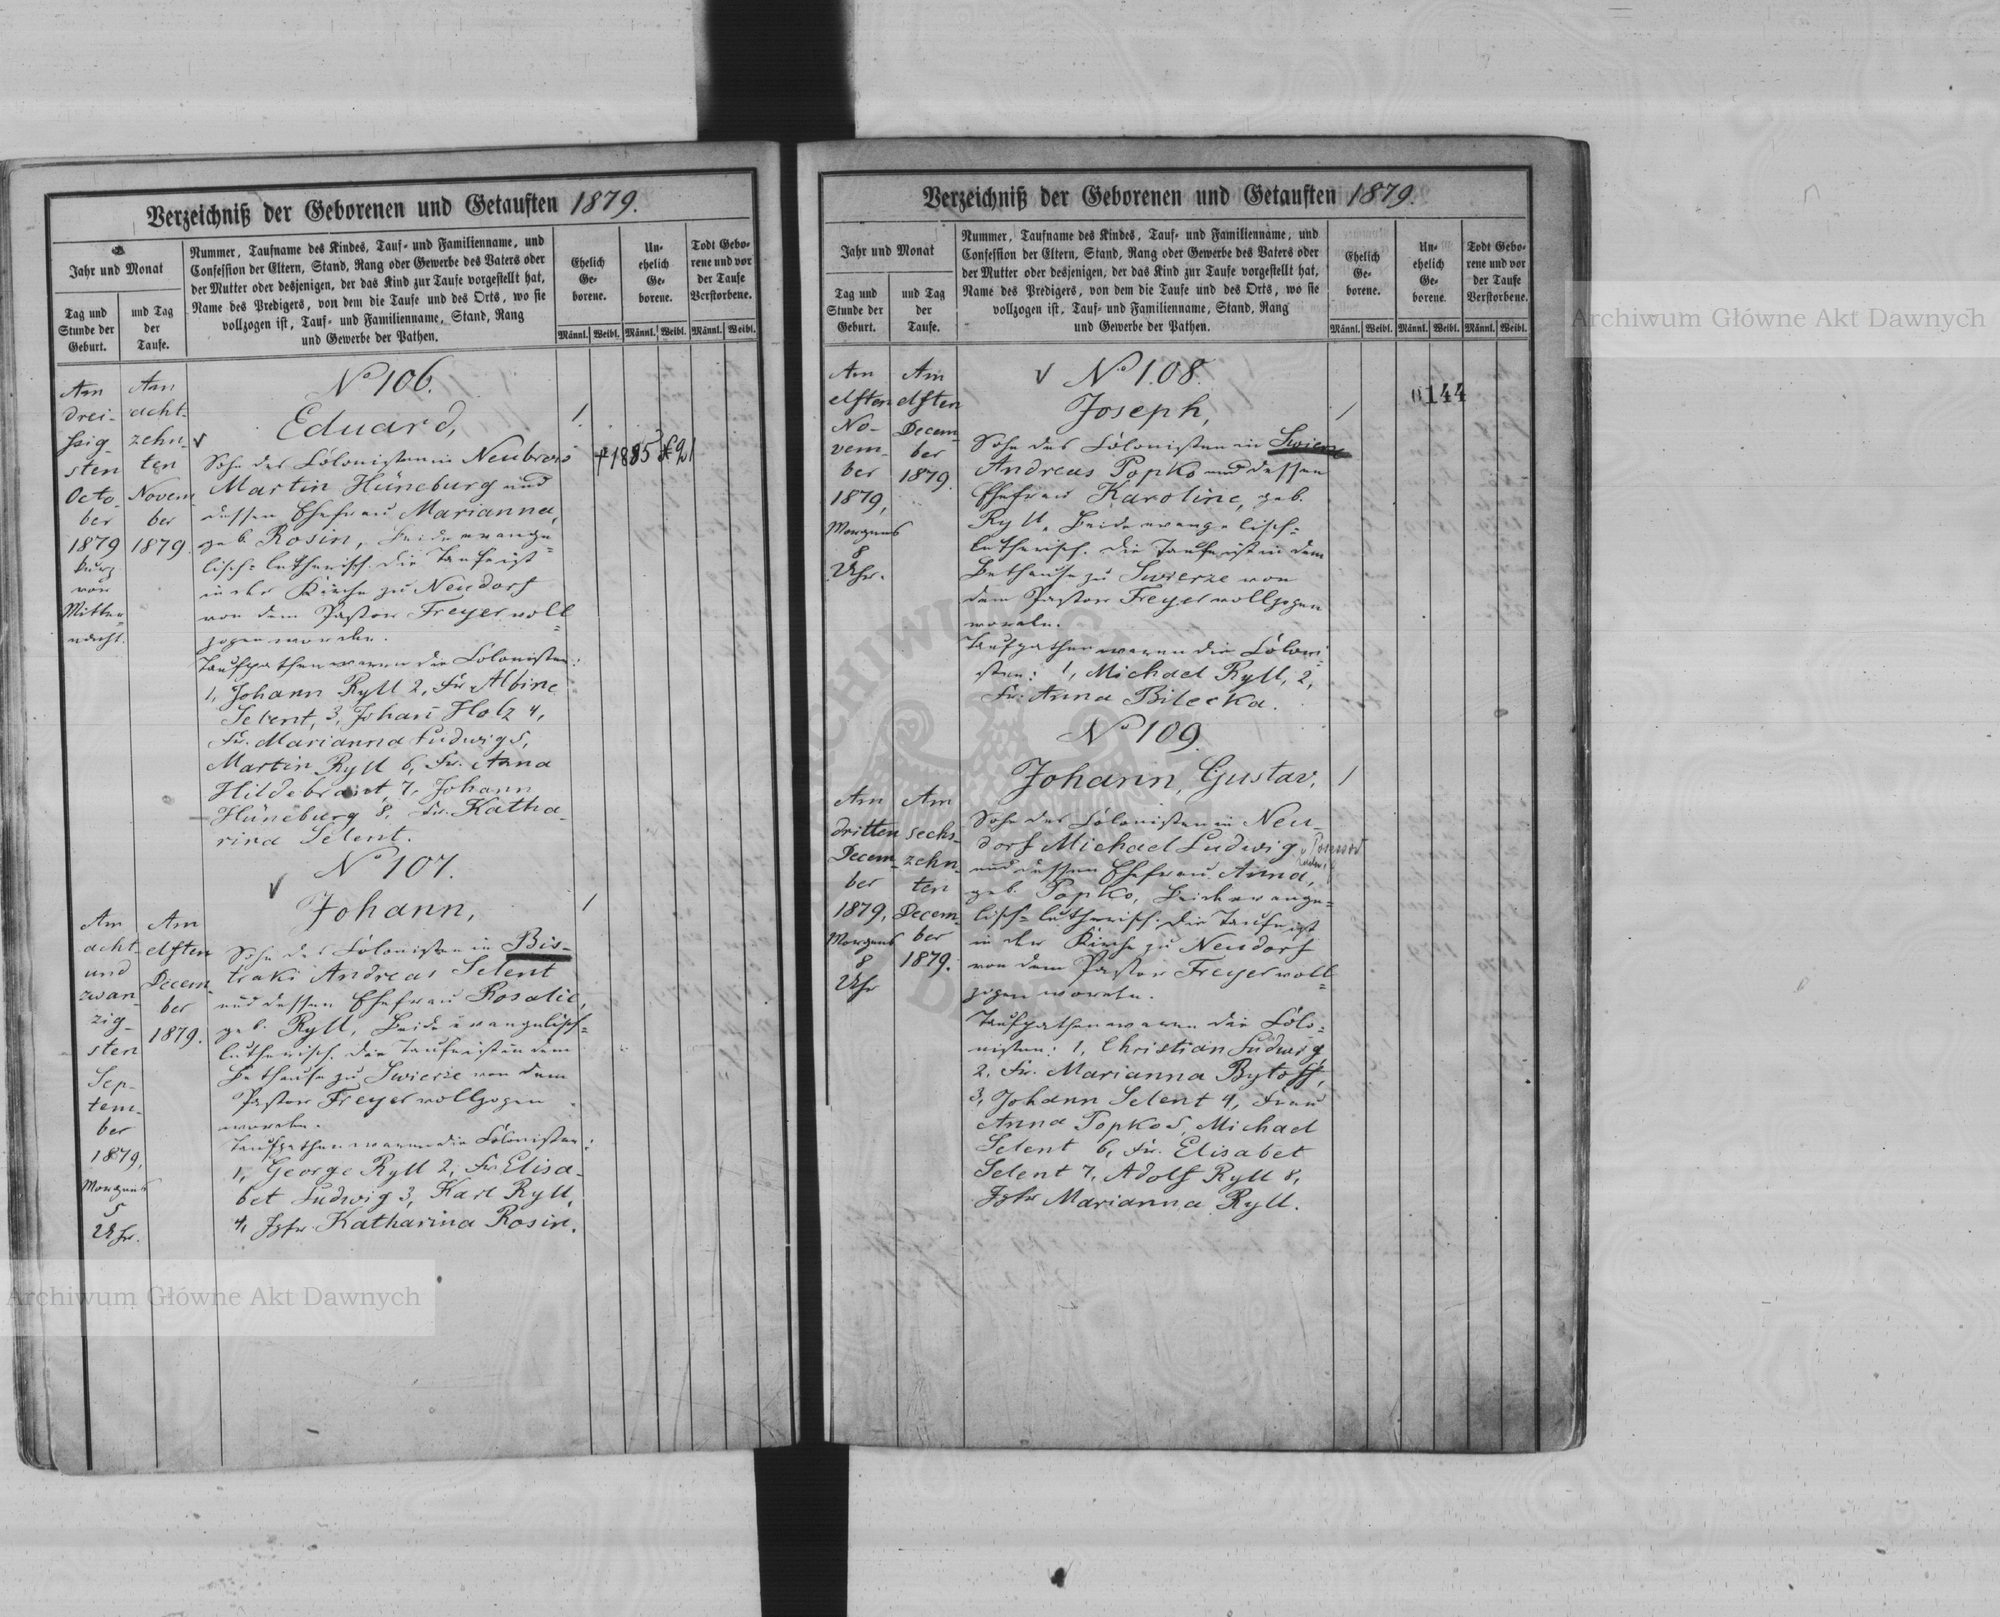 Verzeichniß der Geborenen und Getauften 1879.
Jahr und Monat
Tag und
Stunde der
Geburt.
und Tag
der
Taufe.
Nummer, Taufname des Kindes, Tauf- und Familienname, und
Confession der Eltern, Stand, Rang oder Gewerbe des Vaters oder
der Mutter oder desjenigen, der das Kind zur Taufe vorgestellt hat,
Name des Predigers, von dem die Taufe und des Orts, wo sie
vollzogen ist, Tauf- und Familienname, Stand, Rang
und Gewerbe der Pathen.
Ehelich
Ge-
borene.
Un-
ehelich
Ge-
borene.
Todt Gebo-
rene und vor
der Taufe
Verstorbene.
Männl. Weibl. Männl. Weibl. Männl. Weibl.
Am
drei-
ßig-
sten
Octo-
ber
1879
kurz
vor
Mitter-
nacht.
Am
acht-
zehn-
ten
Novem-
ber
1879.
No 106.
Eduard,
1.
Sohn des Colonisten in Neubrow
†1885 № 21
Martin Hüneburg und
dessen Ehefrau Marianna,
geb. Rosin, beide evange-
lisch-lutherisch. Die Taufe ist
in der Kirche zu Neudorf
von dem Pastor Freyer voll-
zogen worden.
Taufpathen waren die Colonisten:
1, Johann Ryll 2, Fr. Albine
Selent, 3, Johann Holz 4,
Fr. Marianna Ludwig 5,
Martin Ryll 6, Fr. Anna
Hildebrant, 7, Johann
Hüneburg 8, Fr. Katha-
rina Selent.
Am
acht-
und
zwan-
zig-
sten
Sep-
tem-
ber
1879,
Morgens
5
Uhr.
Am
elften
Decem-
ber
1879.
No 107.
Johann,
1
Sohn des Colonisten in Bis-
traki Andreas Selent
und dessen Ehefrau Rosalie,
geb. Ryll, beide evangelisch-
lutherisch. Die Taufe ist in dem
Bethause zu Swierze von dem
Pastor Freyer vollzogen
worden.
Taufpathen waren die Colonisten:
1, George Ryll 2, Fr. Elisa-
bet Ludwig 3, Karl Ryll,
4, Jgfr. Katharina Rosin.
Verzeichniß der Geborenen und Getauften 1879.
Jahr und Monat
Tag und
Stunde der
Geburt.
und Tag
der
Taufe.
Nummer, Taufname des Kindes, Tauf- und Familienname, und
Confession der Eltern, Stand, Rang oder Gewerbe des Vaters oder
der Mutter oder desjenigen, der das Kind zur Taufe vorgestellt hat,
Name des Predigers, von dem die Taufe und des Orts, wo sie
vollzogen ist, Tauf- und Familienname, Stand, Rang
und Gewerbe der Pathen.
Ehelich
Ge-
borene.
Un-
ehelich
Ge-
borene.
Todt Gebo-
rene und vor
der Taufe
Verstorbene.
Männl. Weibl. Männl. Weibl. Männl. Weibl.
144
Am
elften
No-
vem-
ber
1879,
Morgens
8
Uhr.
Am
elften
Decem-
ber
1879.
No 108.
Joseph,
1
Sohn des Colonisten in Swierze
Andreas Popko und dessen
Ehefrau Karoline, geb.
Ryll, beide evangelisch-
lutherisch. Die Taufe ist in dem
Bethause zu Swierze von
dem Pastor Freyer vollzogen
worden.
Taufpathen waren die Coloni-
sten: 1, Michael Ryll, 2,
Fr. Anna Bilecka.
Am
dritten
Decem-
ber
1879,
Morgens
8
Uhr
Am
sechs-
zehn-
ten
Decem-
ber
1879.
No 109.
Johann, Gustav,
1
Sohn des Colonisten in Neu-
dorf Michael Ludwig
und dessen Ehefrau Anna,
geb. Popko, beide evange-
lisch-lutherisch. Die Taufe ist
in der Kirche zu Neudorf
von dem Pastor Freyer voll-
zogen worden.
Taufpathen waren die Colo-
nisten: 1, Christian Ludwig
2, Fr. Marianna Bytoff,
3, Johann Selent 4, Frau
Anna Popko 5, Michael
Selent 6, Fr. Elisabet
Selent 7, Adolf Ryll 8,
Jgfr Marianna Ryll.
Archiwum Główne Akt Dawnych
Archiwum Główne Akt Dawnych